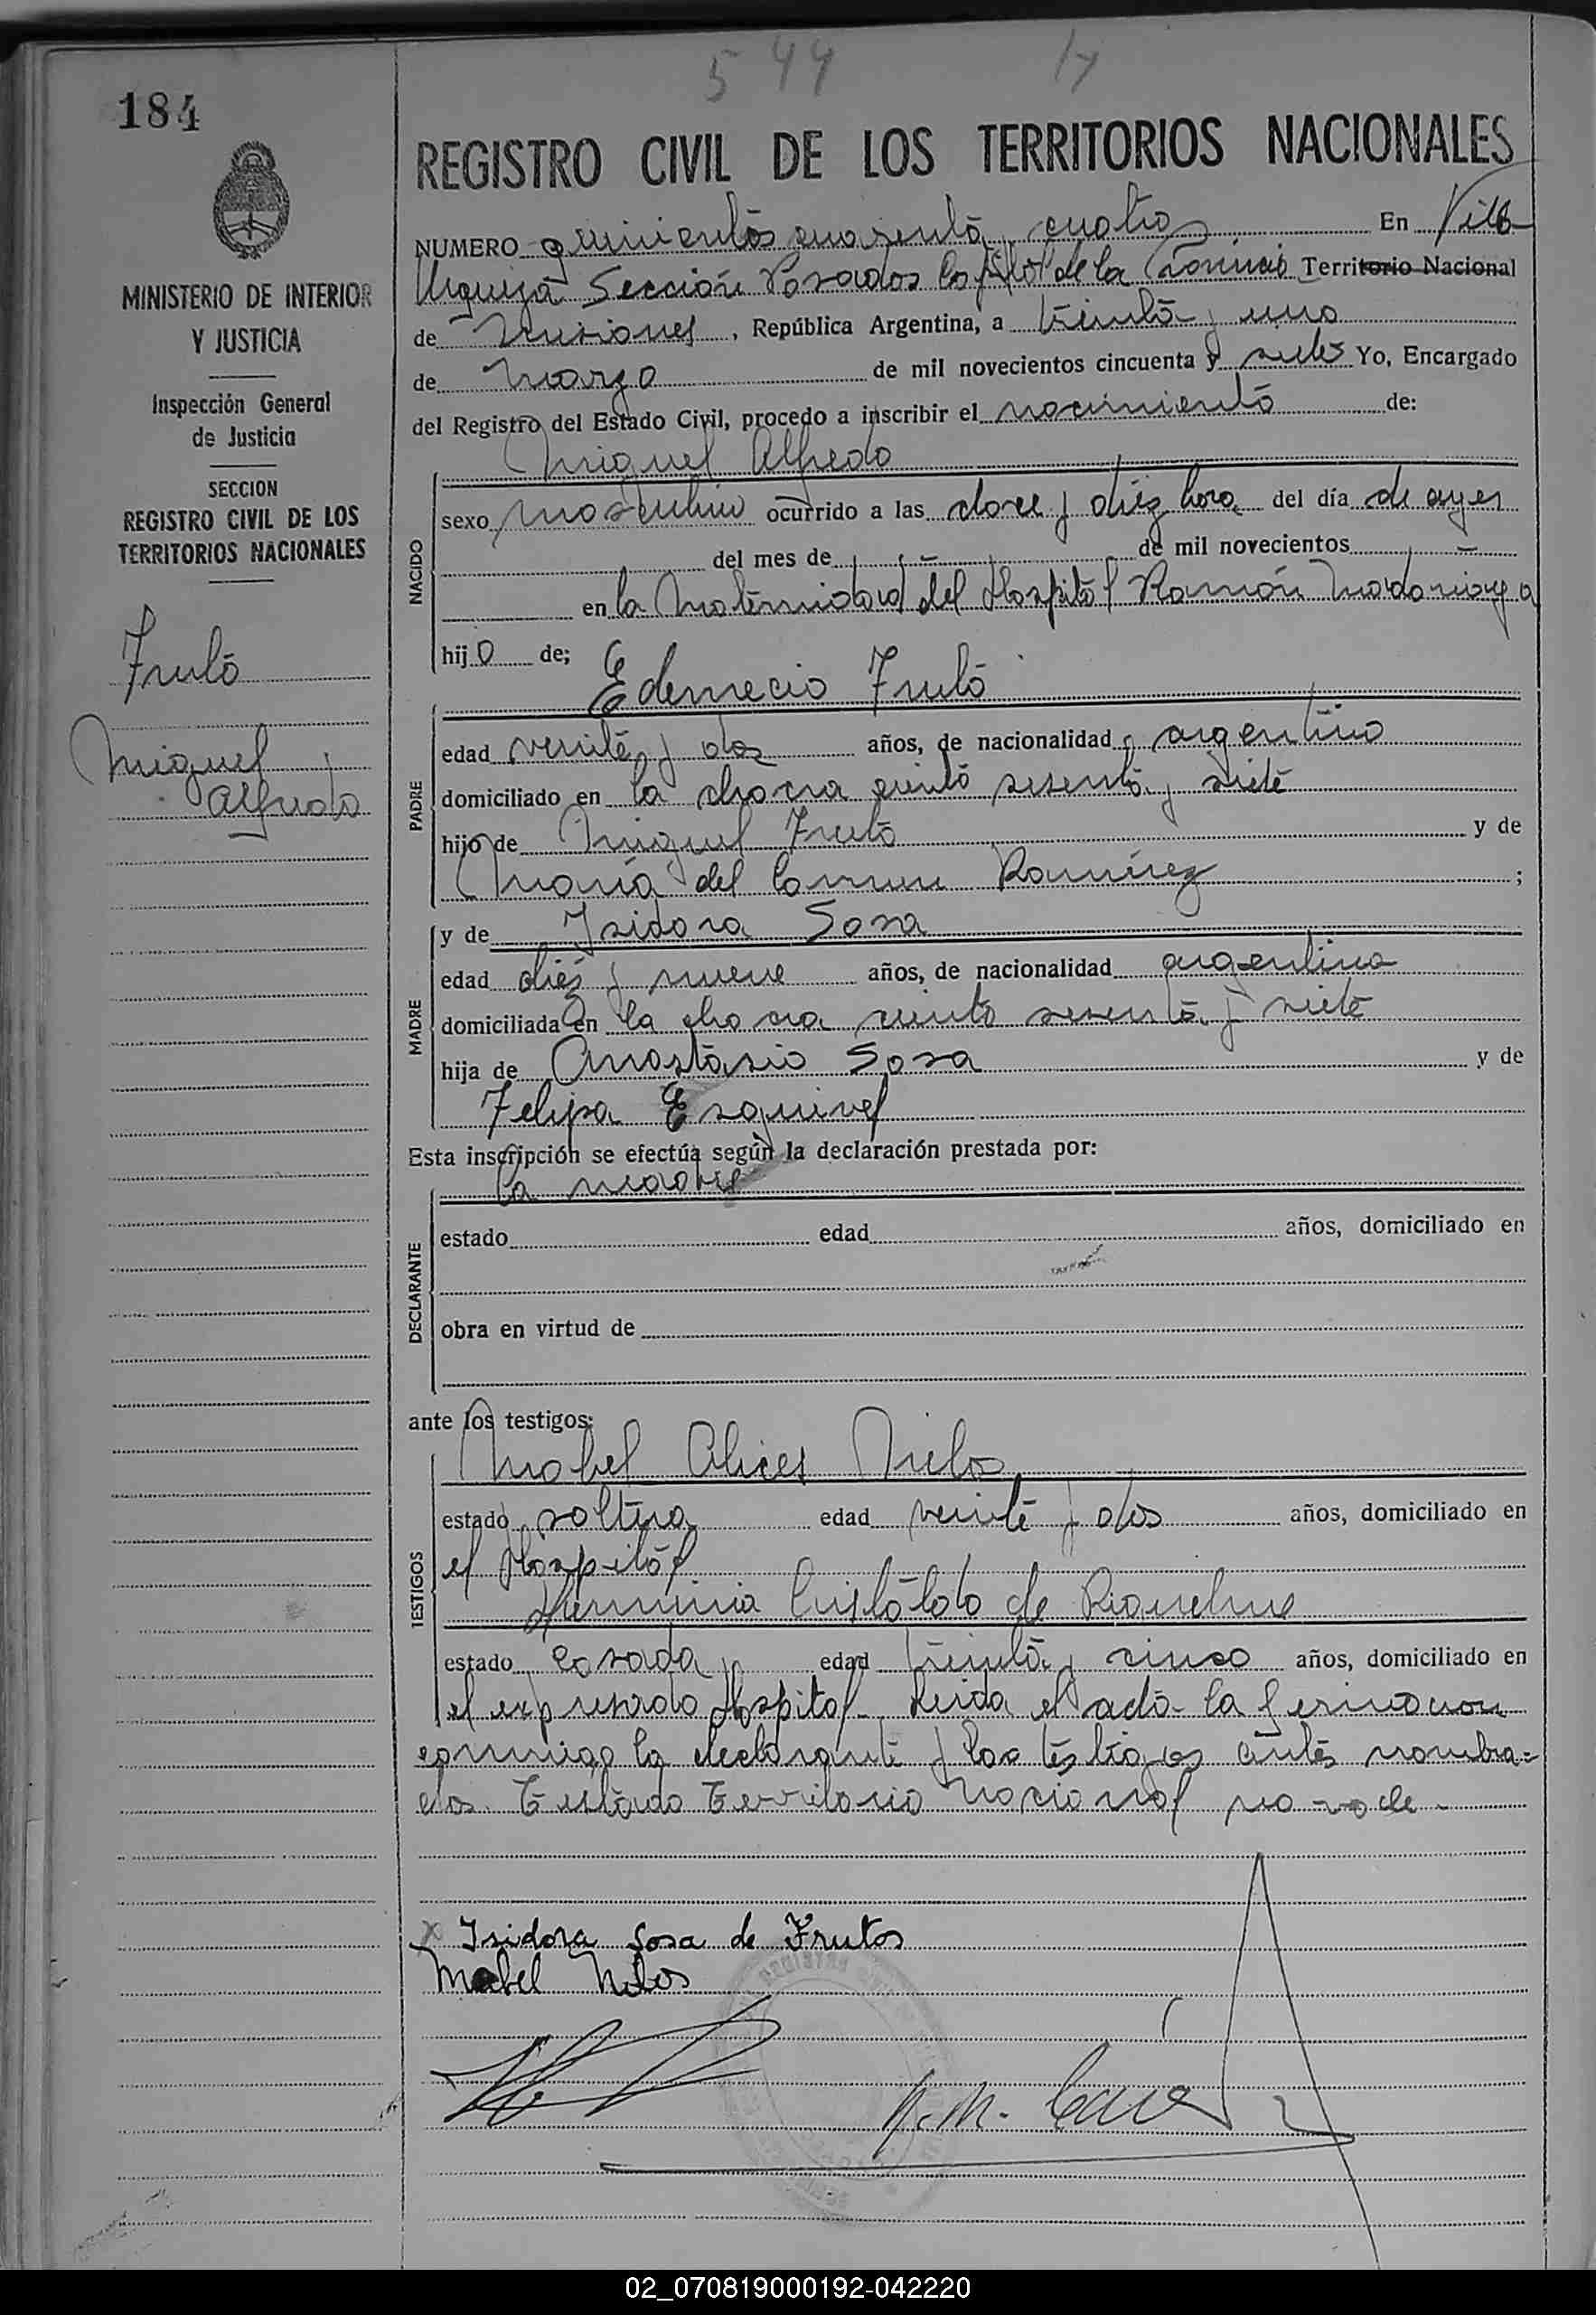 544
184
REGISTRO CIVIL DE LOS TERRITORIOS NACIONALES
MINISTERIO DE INTERIOR
Y JUSTICIA
Inspección General
de Justicia
SECCION
REGISTRO CIVIL DE LOS
TERRITORIOS NACIONALES
Fruto
Miguel
Alfredo
NUMERO quinientos cuarenta y cuatro En Villa
Urquiza Sección Posadas Capital de la Provincia Territorio Nacional
de Misiones, República Argentina, a treinta y uno
de Marzo de mil novecientos cincuenta y siete Yo, Encargado
del Registro del Estado Civil, procedo a inscribir el nacimiento de:
Miguel Alfredo
NACIDO
sexo masculino ocurrido a las doce y diez hora del día de ayer
del mes de de mil novecientos
en la Maternidad del Hospital Ramón Madariaga
hijo de;
Edemecio Fruto
PADRE
edad veinte y dos años, de nacionalidad argentino
domiciliado en la chacra ciento sesenta y siete
hijo de Miguel Fruto y de
María del Carmen Ramírez ;
MADRE
y de Isidora Sosa
edad diés y nueve años, de nacionalidad argentina
domiciliada en la chacra ciento sesenta y siete
hija de Anastasio Sosa y de
Felipa Esquivel
Esta inscripción se efectúa según la declaración prestada por:
la madre
DECLARANTE
estado edad años, domiciliado en
obra en virtud de
ante los testigos:
Mabel Nielos
TESTIGOS
estado soltera edad veinte y dos años, domiciliado en
el Hospital
Herminia de Riquelme
estado casada edad treinta y cinco años, domiciliado en
el expresado Hospital. Leida el acta la firmaron
conmigo la declarante y los testigos antes nombra=
dos. Testado Territorio Nacional no vale
x Isidora Sosa de Frutos
Mabel
02_070819000192-042220